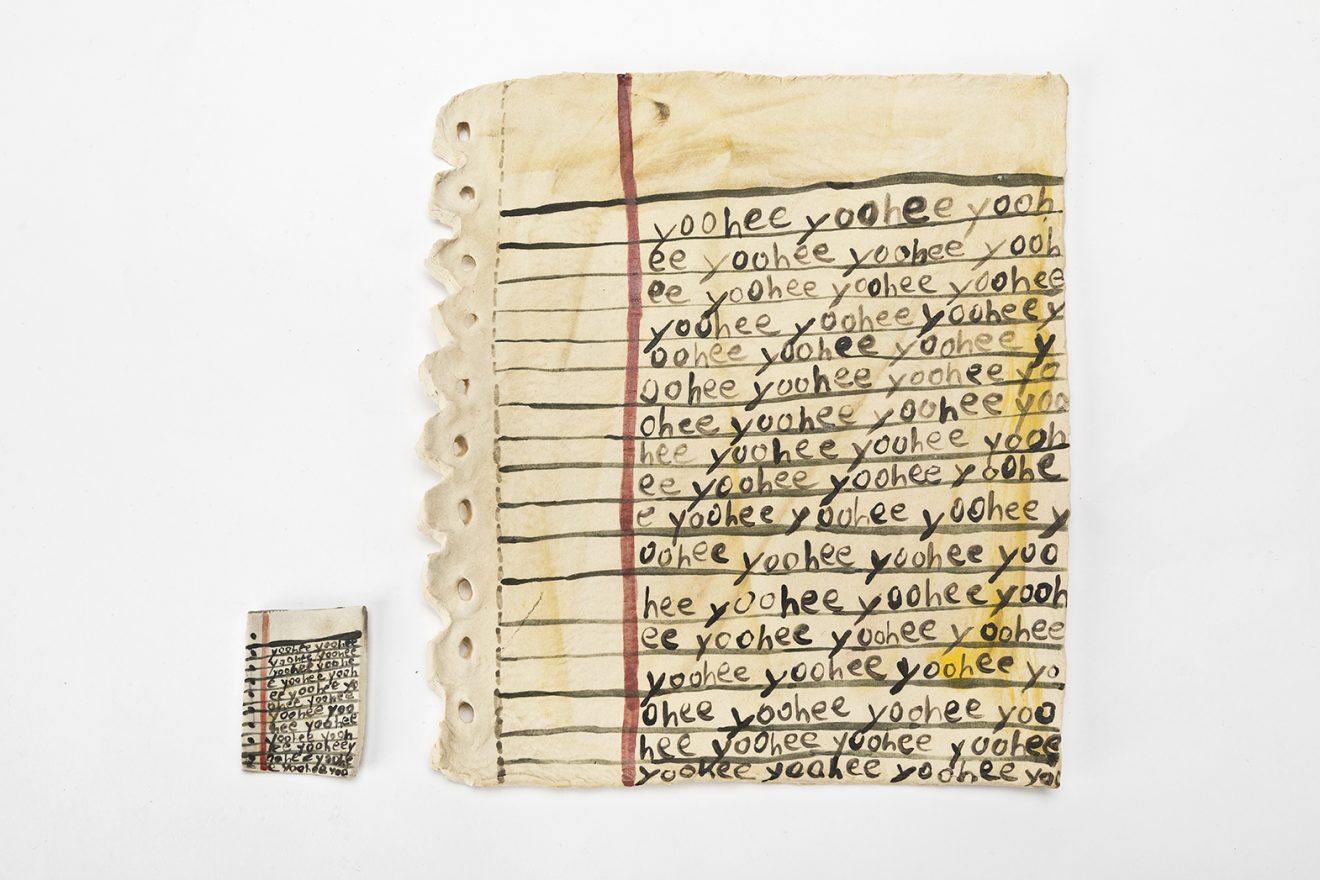 yoohee yoohee yooh
ee yoohee yoohee yooh
ee yoohee yoohee yoohee
yoohee yoohee yoohee y
oohee yoohee yoohee y
oohee yoohee yoohee yo
ohee yoohee yoohee yoo
hee yoohee yoohee yooh
ee yoohee yoohee yoohe
e yoohee yoohee yoohee y
oohee yoohee yoohee yoo
hee yoohee yoohee yooh
ee yoohee yoohee yoohee
yoohee yoohee yoohee yo
ohee yoohee yoohee yoo
hee yoohee yoohee yoohee
yoohee yoohee yoohee yoo
yoohee yoohee
yoohee yoohee
yoohee yoohe
e yoohee yooh
ee yoohee yo
ohee yoohee
yoohee yoo
hee yoohee
yoohee yooh
ee yooheey
oohee yoohe
e yoohee yoo